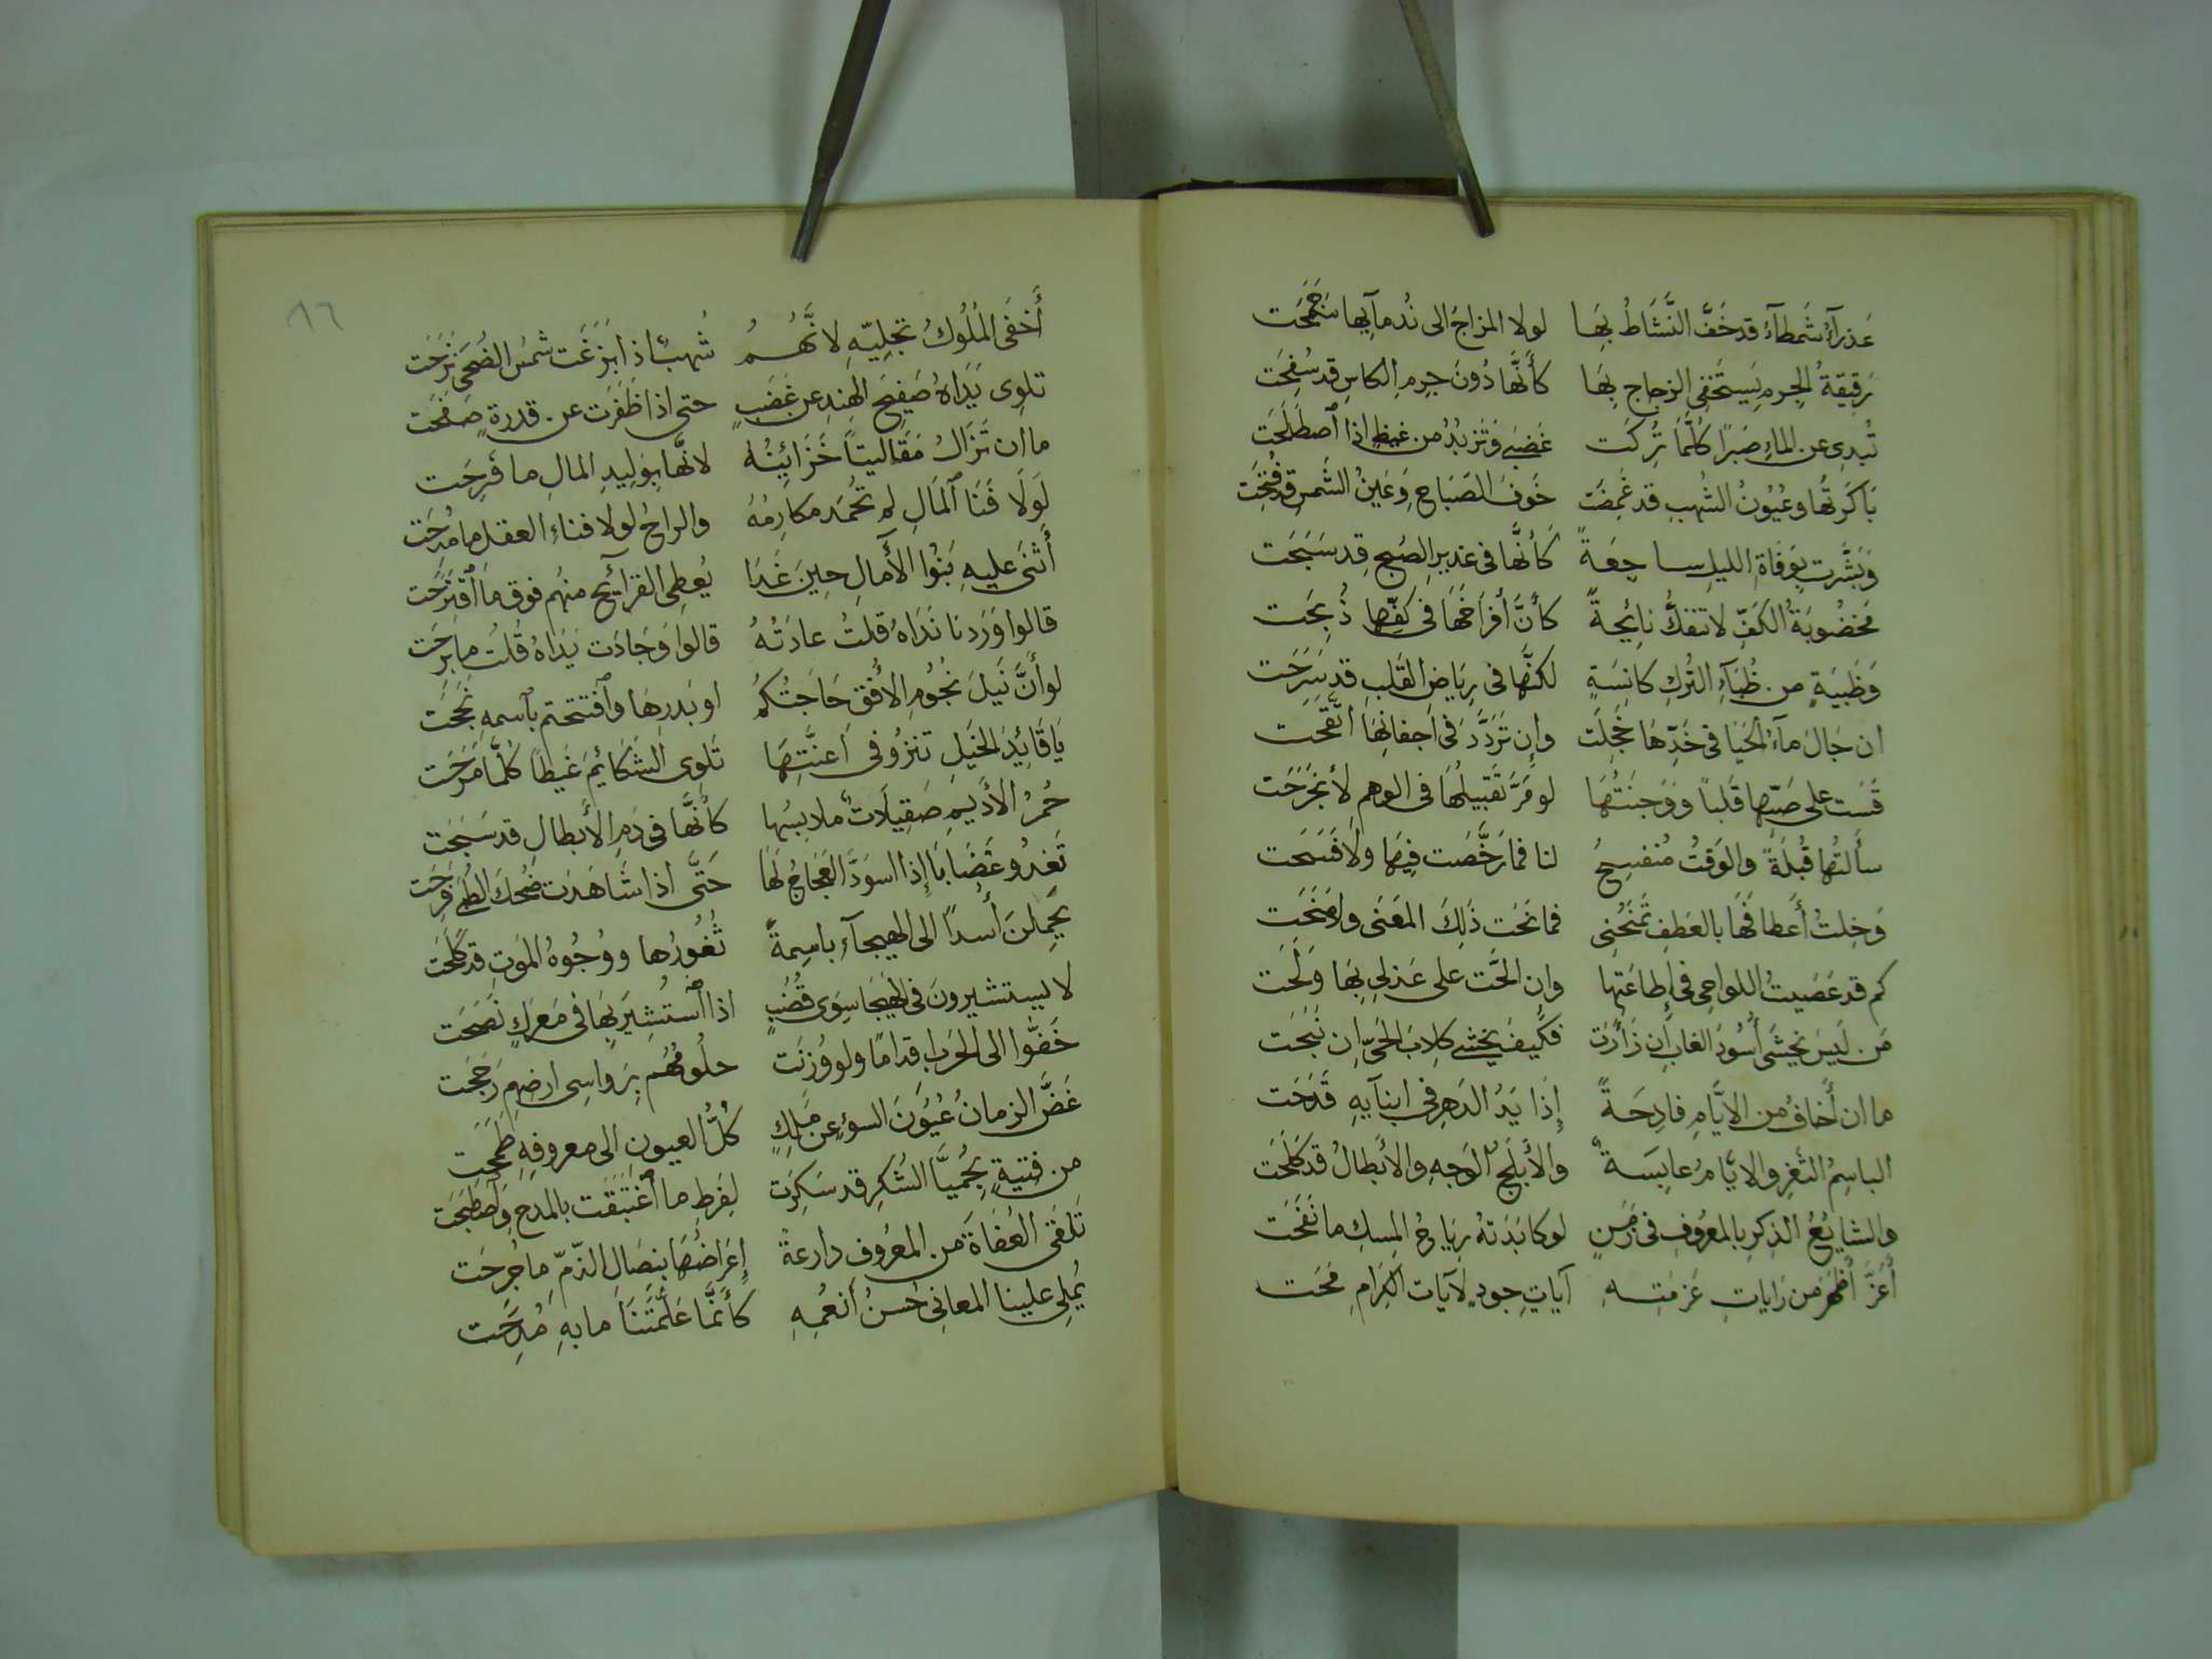 عَذرآءُ شَمطآءُ قد خَفَّ النَّشَاطُ بِهَا لولا المزاجُ الى نُدمآيها جَمَحَت
رَقيقةُ الجِرمِ يَستَخفِى الزجاج بِهَا كأَنَّها دُونَ جِرمِ الكاسِ قد سُفِحَت
تُبدِى عن الماءِ صَبرًا كُلَّمَا تُرِكَت غَضبَى وَتزبُدُ من غيظٍ اذا ٱصطَلَحَت
بَاكَرتُها وعُيُونُ الشُهبِ قد غَمِضَت خَوفَ الصَبَاحِ وَعَينُ الشَمسِ قد فُتِحَت
وَبَشَّرت بِوَفَاةِ الليلِ ساجِعَةٌ كأنَّها فى غديرِ الصُبحِ قد سَبَحَت
مَخضُوبَةُ الكَفِّ لاتنفكُّ نايحةً كأَنَّ أفرَاخَهَا فى كفِّها ذُبِحَت
وَظَبيَةٍ من ظُبَآءِ التُركِ كانِسَةٍ لكنَّها فى رِيَاضِ القَلبِ قد سَرَحَت
ان جَالَ مآءُ الحَيَا فى خَدِّهَا خَجِلَت وإن تَرَدَّدَ فى اجفانِهَا اتَّقَحت
قَسَت على صَبّها قَلبًا وَوَجنَتُهَا لو مَرَّ تَقبيلُها فى الوهمِ لأنجَرَحَت
سألتُها قُبلَةً والوَقتُ مُنفسِحُ لنا فما رَخَّصَت فِيهَا ولا فَسَحَت
وَخِلتُ أَعطافَهَا بالعَطفِ تَمنَحُنِى فما نَحَت ذَلِكَ المَعنَى ولا مَنَحَت
كم قد عَصَيتُ اللواحِى فى إطاعَتِها وإن الحَّت على عَذلى بِهَا وَلَحَت
مَن لَيسَ يَخشَى أُسُودَ الغابِ إن زَأَرَت فكَيفَ يخشى كلابَ الحَىّ اِن نَبَحَت
ما ان أخافُ من الايَّامِ فادِحَةً إذَا يَدُ الدَهرِ فى ابنآيهِ قَدَحَت
الباسِمُ الثَغرِ والايَّامُ عابِسَةٌ والأبلَجُ الوَجهِ والأبطالُ قد كَلَحَت
والشايعُ الذِكرِ بالمعرُوفِ فى زَمَنٍ لو كابَدَتهُ رِيَاحُ المِسكِ ما نَفَحَت
أغَرُّ أظهَرَ من رَاياتِ عَزمَتِهِ آياتِ جودٍ لآيات الكِرَامِ مَحَت
٨٦
أَخفَى المُلُوكُ تَجلّيهِ لانَّهُمُ شُهبٌ اذا بَزَغَت شمسُ الضُحى نَزَحَت
تلوِى يَدَاهُ صَفيحَ الهِندِ عن غَضَبٍ حتى اذا ظَفَرَت عن قدرةٍ صَفَحَت
ما ان تَزَالُ مَقَاليتًا خَزَائِنُه لانّها بِوَلِيدِ المالِ ما فَرِحَت
لَولَا فَنَا ٱلمَالِ لم تُحمَد مكارِمُهُ والراحُ لولا فناءُ العقلِ ما مُدِحَت
أَثنى عليهِ بَنُوا الآمالِ حِينَ غَدَا يُعطِى القرآئِحَ منهُم فوق ما ٱقتَرَحَت
قالوا وَرَدنا نَدَاهُ قلتُ عادَتُهُ قالوا وَجَادَت يَدَاهُ قُلتُ ما بَرِحَت
لو أنَّ نَيلَ نجُومِ الاُفقِ حَاجَتُكُم او بَدرِهَا وٱفتتحتم بٱسمهِ نَجَحَت
يَا قَائِدَ الخَيلِ تنزُو فى اَعِنَّتِهَا تَلوِى الشَكَائِمَ غَيظًا كُلَّما مَرَحَت
حُمرُ الأَديمِ صَقِيلَاتٌ ملابسُها كأَنَّها فى دَمِ الأبطالِ قد سَبَحَت
تَغدُو غِضَابًا إذا اسوَدَّ العَجَاجُ لَهَا حَتَّى اذا شَاهَدَت ضُحكَ الظُبى فَرِحَت
يَحمِلنَ أُسدًا الى الهيجآءِ باسِمةً ثُغُورُها ووُجُوهُ المَوتِ قد كَلَحَت
لا يستشيرونَ فى الهَيجَا سِوَى قُضُبٍ اذا ٱستُشِيرَ بِهَا فى مَعرَكٍ نَصَحَت
خَفّوا الى الحَربِ اقدامًا ولو وُزِنَت حلُومُهُم بِرَواسِى ارضِهِم رَجَحَت
غَضَّ الزمانُ عُيُونَ السوءِ عن مَلِكٍ كُلُّ العيونِ الى معروفِهِ طَمَحَت
من فتيةٍ بِحُمَيَّا الشُكرِ قد سَكِرَت لِفَرطِ ما ٱغتَبَقَت بالمدحِ وٱصطَبَحَت
تَلقَى العُفَاةَ من المعرُوف دارعةً إعرَاضُهَا بِنصَالِ الذّمِّ ما جُرِحَت
يُملِى علينا المعانِى حُسنُ أنعُمِهِ كأَنَّما عَلَّمَتَنا ما بهِ مُدِحَت